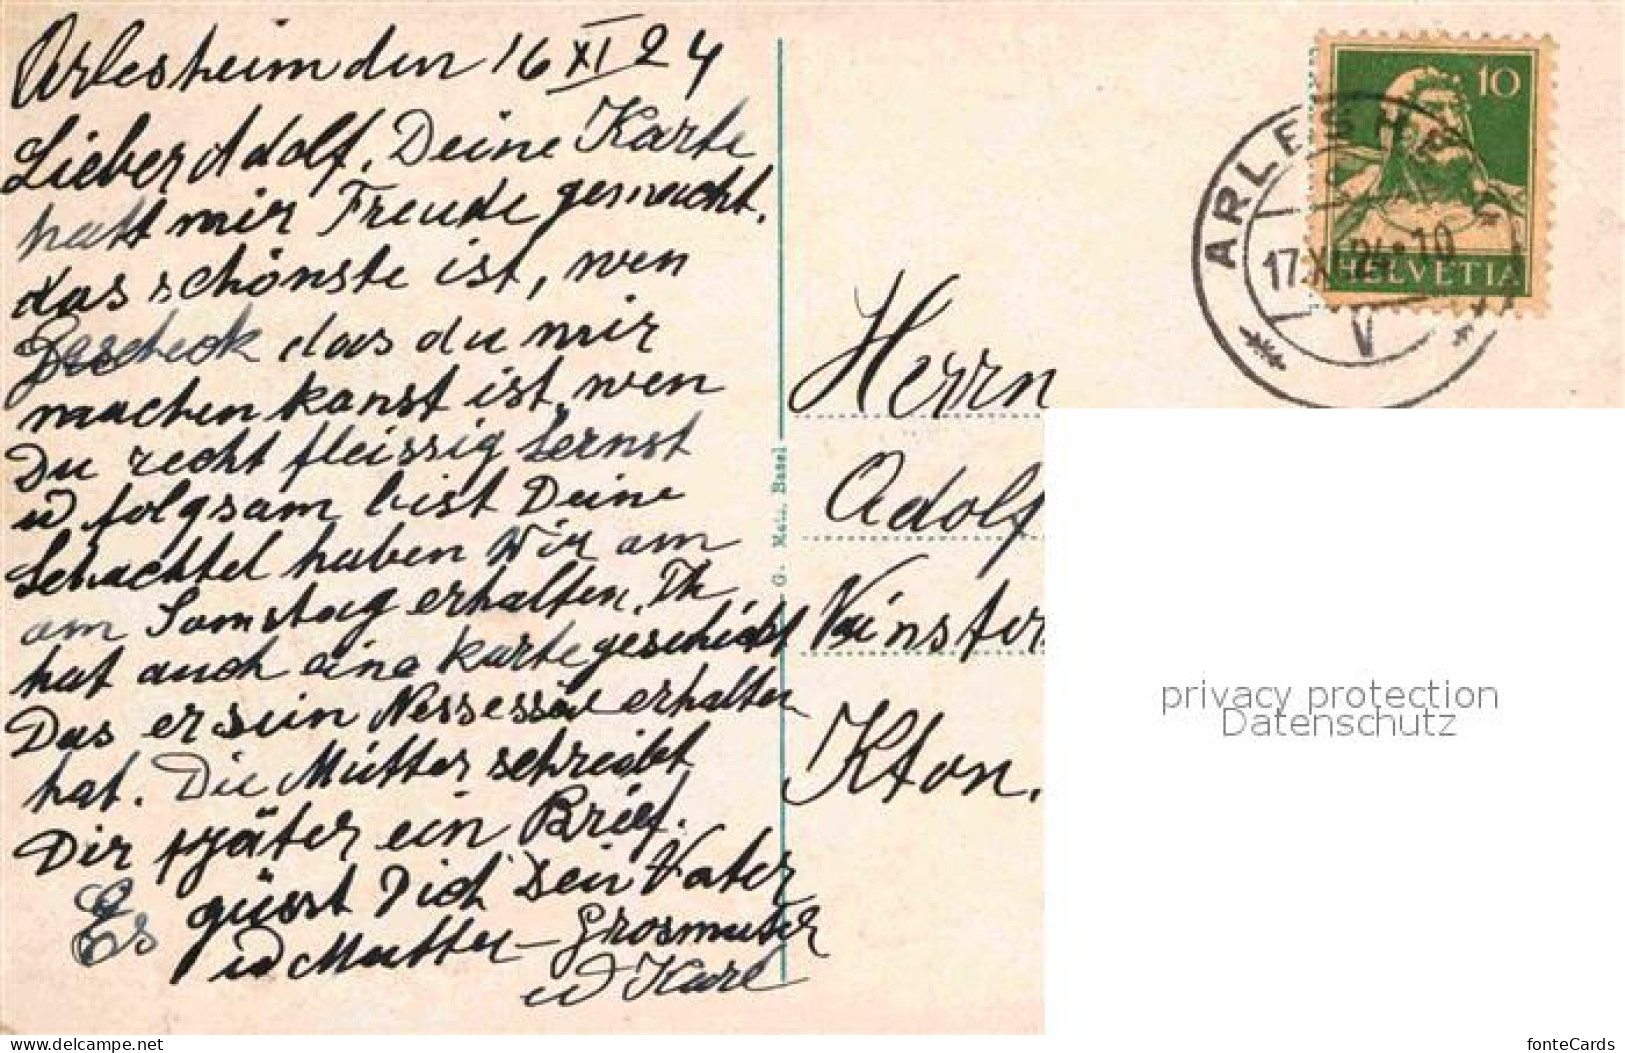 Arlesheim den 16 XI 24
Lieber Adolf, Deine Karte
hatt mir Freude gemacht.
das schönste ist, wen
das du mir
machen kanst ist, wen
Du recht fleissig lernst
u folgsam bist Deine
Schachtel haben Wir am
am Samstag erhalten. Th
hat auch eine Karte geschickt
Das er sein Nessessär erhalten
hat. Die Mutter schreibt
Dir später ein Brief.
Es grüsst Dich Dein Vater
u Mutter - Grosmuter
u Karl
G. Metz, Basel
Herrn
Adolf
Kton.
10
HELVETIA
ARLESHE
17.XI.24-10
V
privacy protection
Datenschutz
www.delcampe.net
fonteCards